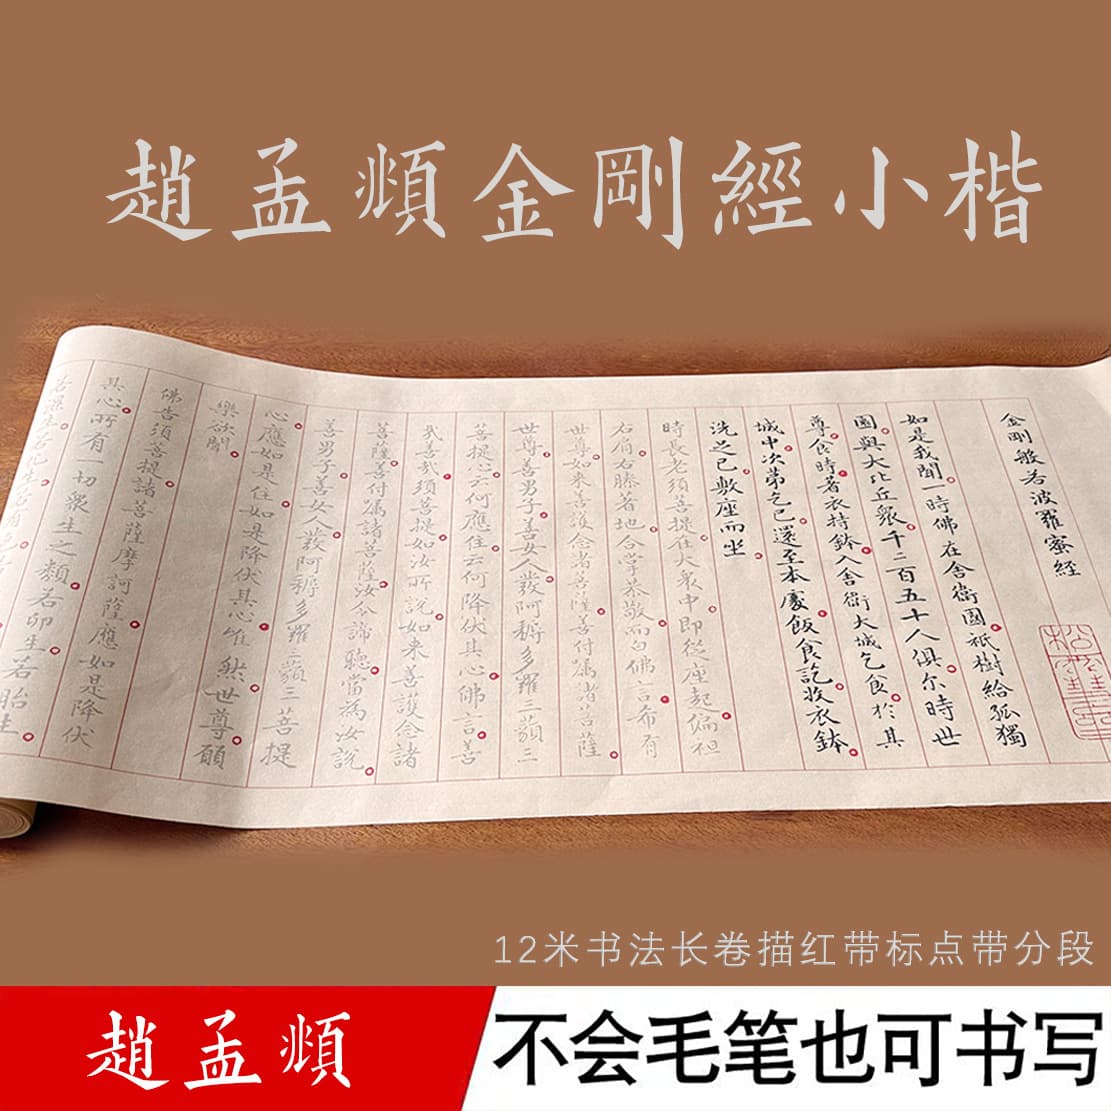 趙孟頫金剛經小楷
金剛般若波羅蜜經
如是我聞一時佛在舍衛國祇樹給孤獨
園與大比丘眾千二百五十人俱尒時世
尊食時著衣持鉢入舍衛大城乞食於其
城中次第乞已還至本處飯食訖收衣鉢
洗足已敷座而坐
時長老須菩提在大眾中即從座起偏袒
右肩右膝著地合掌恭敬而白佛言希有
世尊如來善護念諸菩薩善付囑諸菩薩
世尊善男子善女人發阿耨多羅三藐三
菩提心云何應住云何降伏其心佛言善
哉善哉須菩提如汝所說如來善護念諸
菩薩善付囑諸菩薩汝今諦聽當為汝說
善男子善女人發阿耨多羅三藐三菩提
心應如是住如是降伏其心唯然世尊願
樂欲聞
佛告須菩提諸菩薩摩訶薩應如是降伏
其心所有一切眾生之類若卵生若胎生
12米书法长卷描红带标点带分段
趙孟頫
不会毛笔也可书写